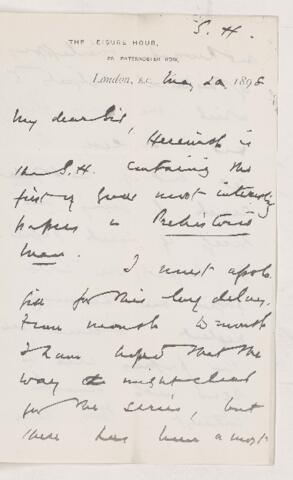 S. H.
THE LEISURE HOUR,
56 PATERNOSTER ROW,
London, E.C. May 20 1898
My dear Sir,
Herewith is
the S.H. containing the
first of your most interesting
papers on Prehistoric
Man.
I must apolo
gise for this long delay.
From month to month
I have hoped that the
way might clear
for the series, but
there has been a most